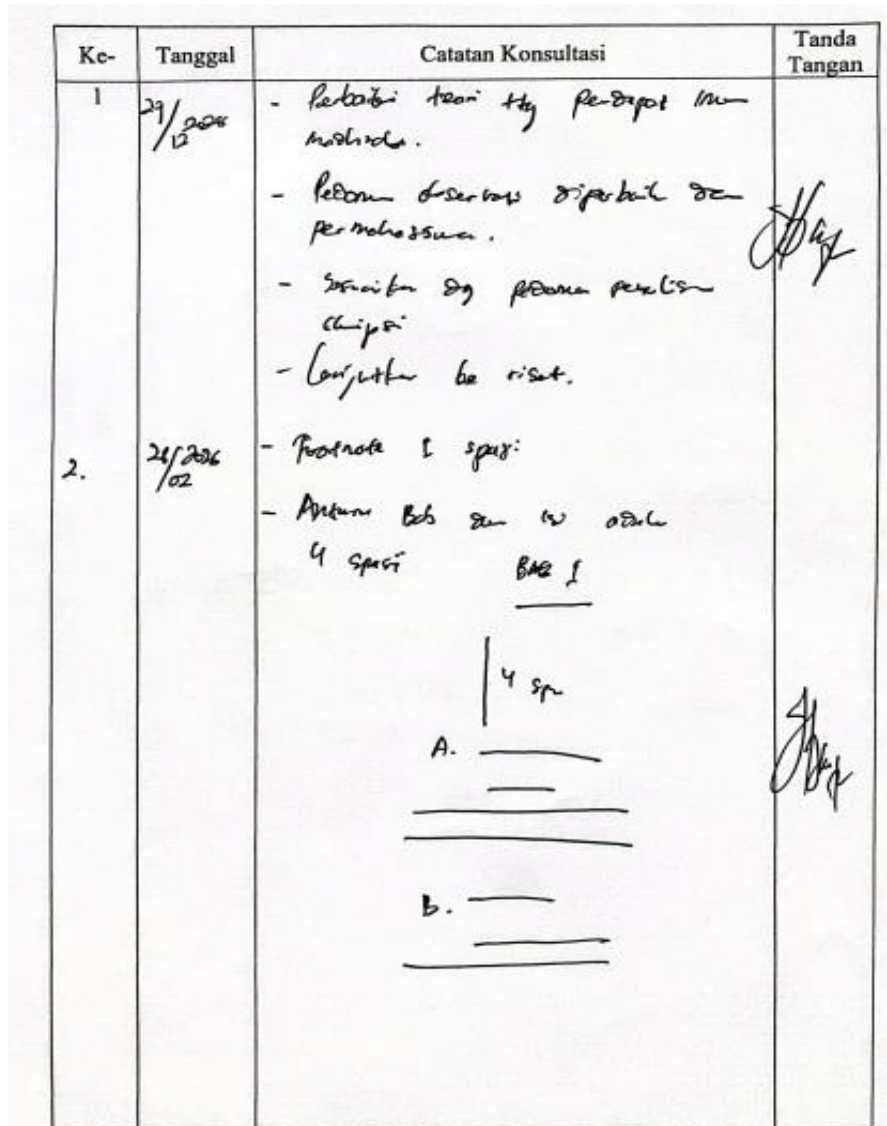 Ke- Tanggal Catatan Konsultasi Tanda Tangan
1 29/12 - Perbaiki teori ttg pendapat
- Pedoman observasi diperbaiki dan
permahasiswa.
- Sesuaikan dg pedoman penulisan
skripsi
- Lanjutkan ke riset.
2. 26/2026 02 - Footnote 1 spasi
- Antara Bab dan isi adalah
4 spasi
BAB I
4 spasi
A.
B.